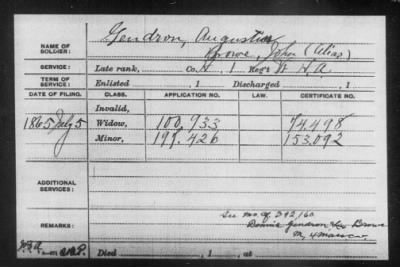 NAME OF SOLDIER: Gendron, Augustin
Browe, John (Alias)
SERVICE: Late rank, Co. H, 1 Reg't Vt H. A.
TERM OF SERVICE: Enlisted , 1 Discharged , 1
DATE OF FILING. CLASS. APPLICATION NO. CERTIFICATE NO.
Invalid,
1865 July 5 Widow, 100,933 74,498
Minor, 199,426 153,092
ADDITIONAL SERVICES:
REMARKS: See mo of 392160
Gendron Browe
M, 4 Mass Cav
Died , 1 at